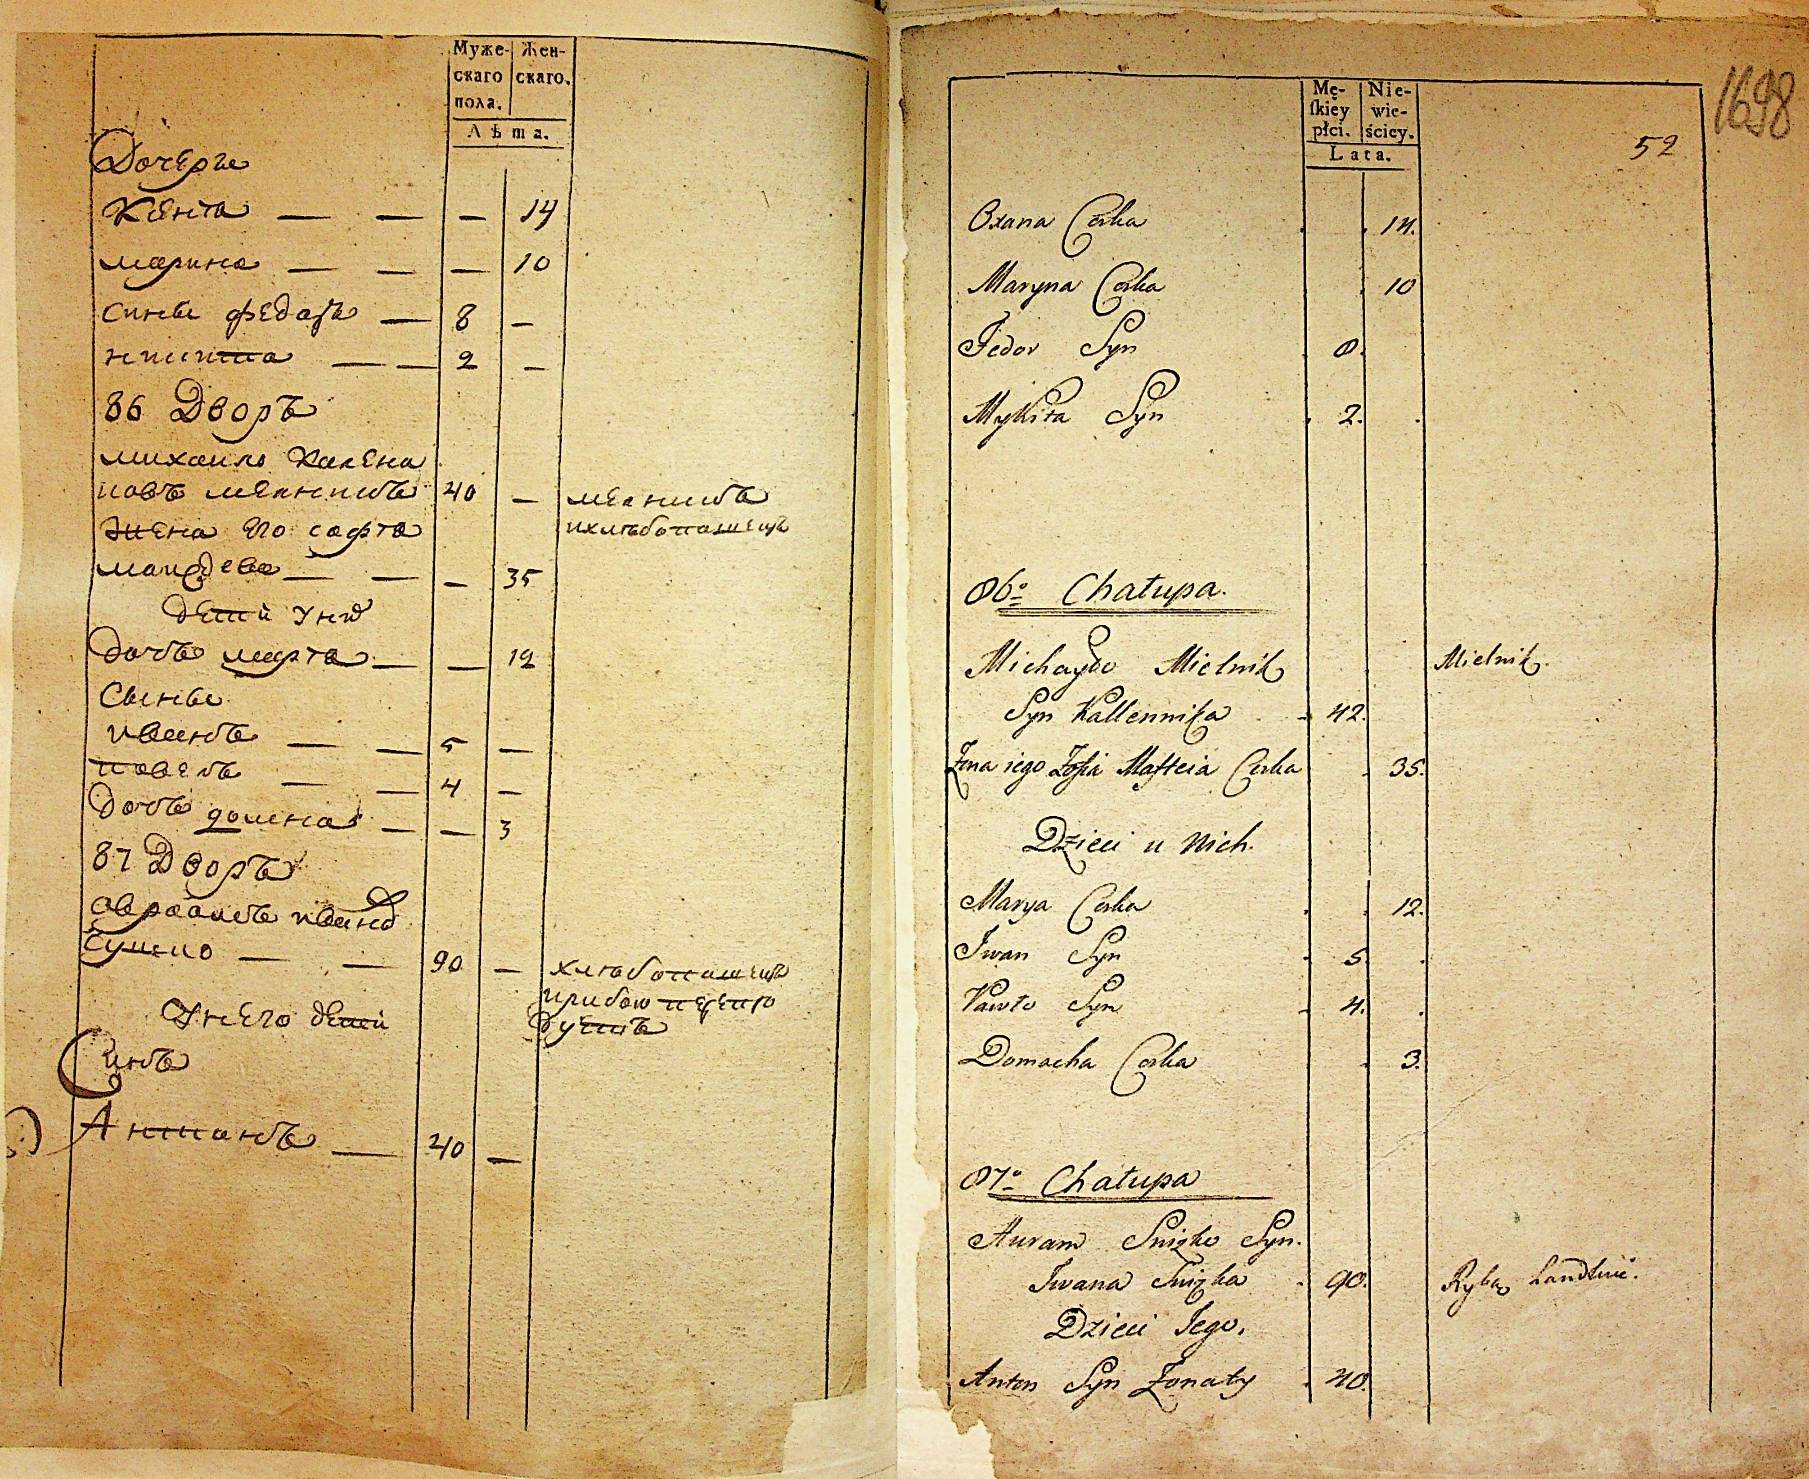 Муже-
скаго
пола.
Жен-
скаго.
Лѣта.
Дочери
Ксенїа — — — 14
марина — — — 10
синъı федоръ — 8 —
никита — — 2 —
86 Дворъ
михаило Калени
ковъ мелникъ 40 — мелникъ
жена его софїа ихлѣбопашецъ
маѳ:дева — — — 35
детй унид
дочъ марїа — — 12
Сынъı
иванъ — — 5 —
павелъ — — 4 —
дочъ домна — — 3
87 Дворъ
авраамъ иванов
— — 90 — хлѣбопашецъ
унего детей
Синъ
Антонъ — 40 —
1698
52
Mę-
skiey
płci.
Nie-
wie-
ściey.
Lata.
Oxana Corka . . 14.
Maryna Corka . 10
Fedor Syn . 8.
Mykita Syn . 2. .
86o Chałupa.
Michayło Mielnik Mielnik.
Syn Kallennika . 42.
Żona iego Zofia Matfeia Corka . 35.
Dzieci u nich.
Marya Corka . . 12.
Iwan Syn . 5. .
Pawło Syn . 4. .
Domacha Corka . 3.
87o Chałupa
Auram Snizko Syn.
Iwana Snizka . 90. Rybak
Dzieci Iego.
Anton Syn Żonaty . 40.